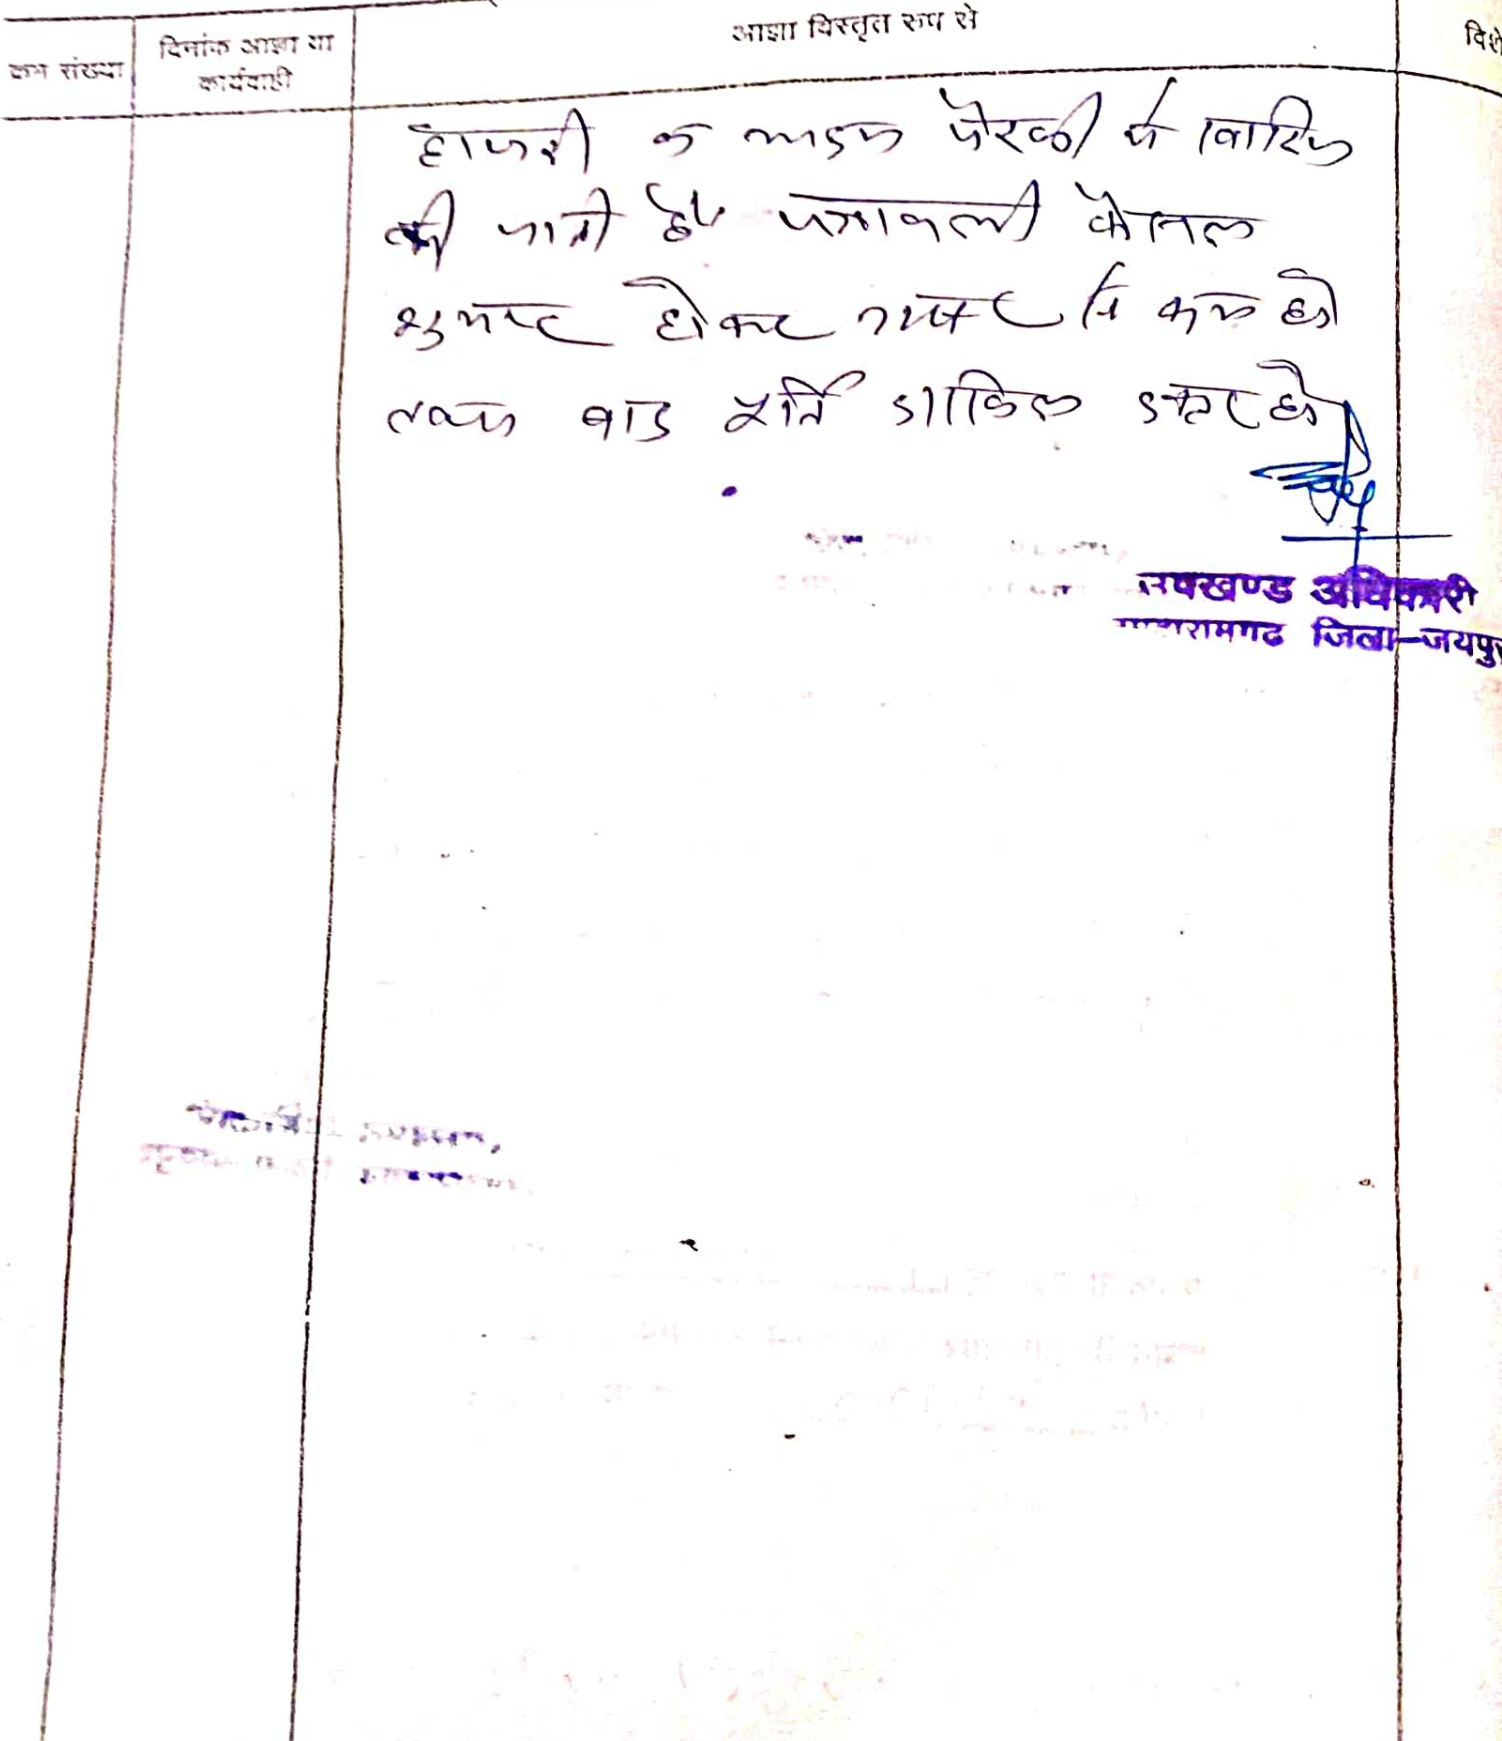 क्रम संख्या
दिनांक आज्ञा या
कार्यवाही
आज्ञा विस्तृत रूप से
विशे
हाजरी व अदम पैरवी में खारिज
की जाती है। पत्रावली फैसल
शुमार होकर नम्बर से कम हो
बाद पूर्ति दाखिल दफ्तर हो
उपखण्ड अधिकारी
जिला-जयपुर